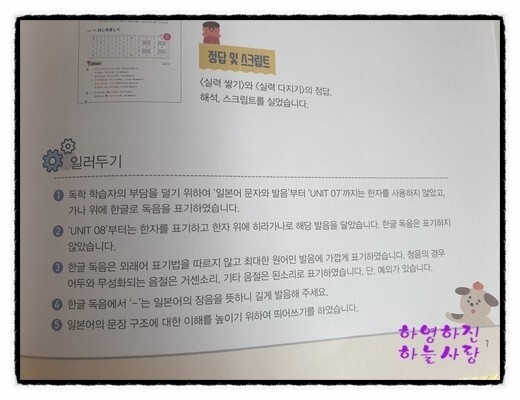 はじめまして
정답 및 스크립트
〈실력 쌓기〉와 〈실력 다지기〉의 정답,
해석, 스크립트를 실었습니다.
일러두기
1 독학 학습자의 부담을 덜기 위하여 '일본어 문자와 발음'부터 'UNIT 07'까지는 한자를 사용하지 않았고,
가나 위에 한글로 독음을 표기하였습니다.
2 'UNIT 08'부터는 한자를 표기하고 한자 위에 히라가나로 해당 발음을 달았습니다. 한글 독음은 표기하지
않았습니다.
3 한글 독음은 외래어 표기법을 따르지 않고 최대한 원어민 발음에 가깝게 표기하였습니다. 청음의 경우
어두와 무성화되는 음절은 거센소리, 기타 음절은 된소리로 표기하였습니다. 단, 예외가 있습니다.
4 한글 독음에서 '–'는 일본어의 장음을 뜻하니 길게 발음해 주세요.
5 일본어의 문장 구조에 대한 이해를 높이기 위하여 띄어쓰기를 하였습니다.
하영하진
하늘사랑
7